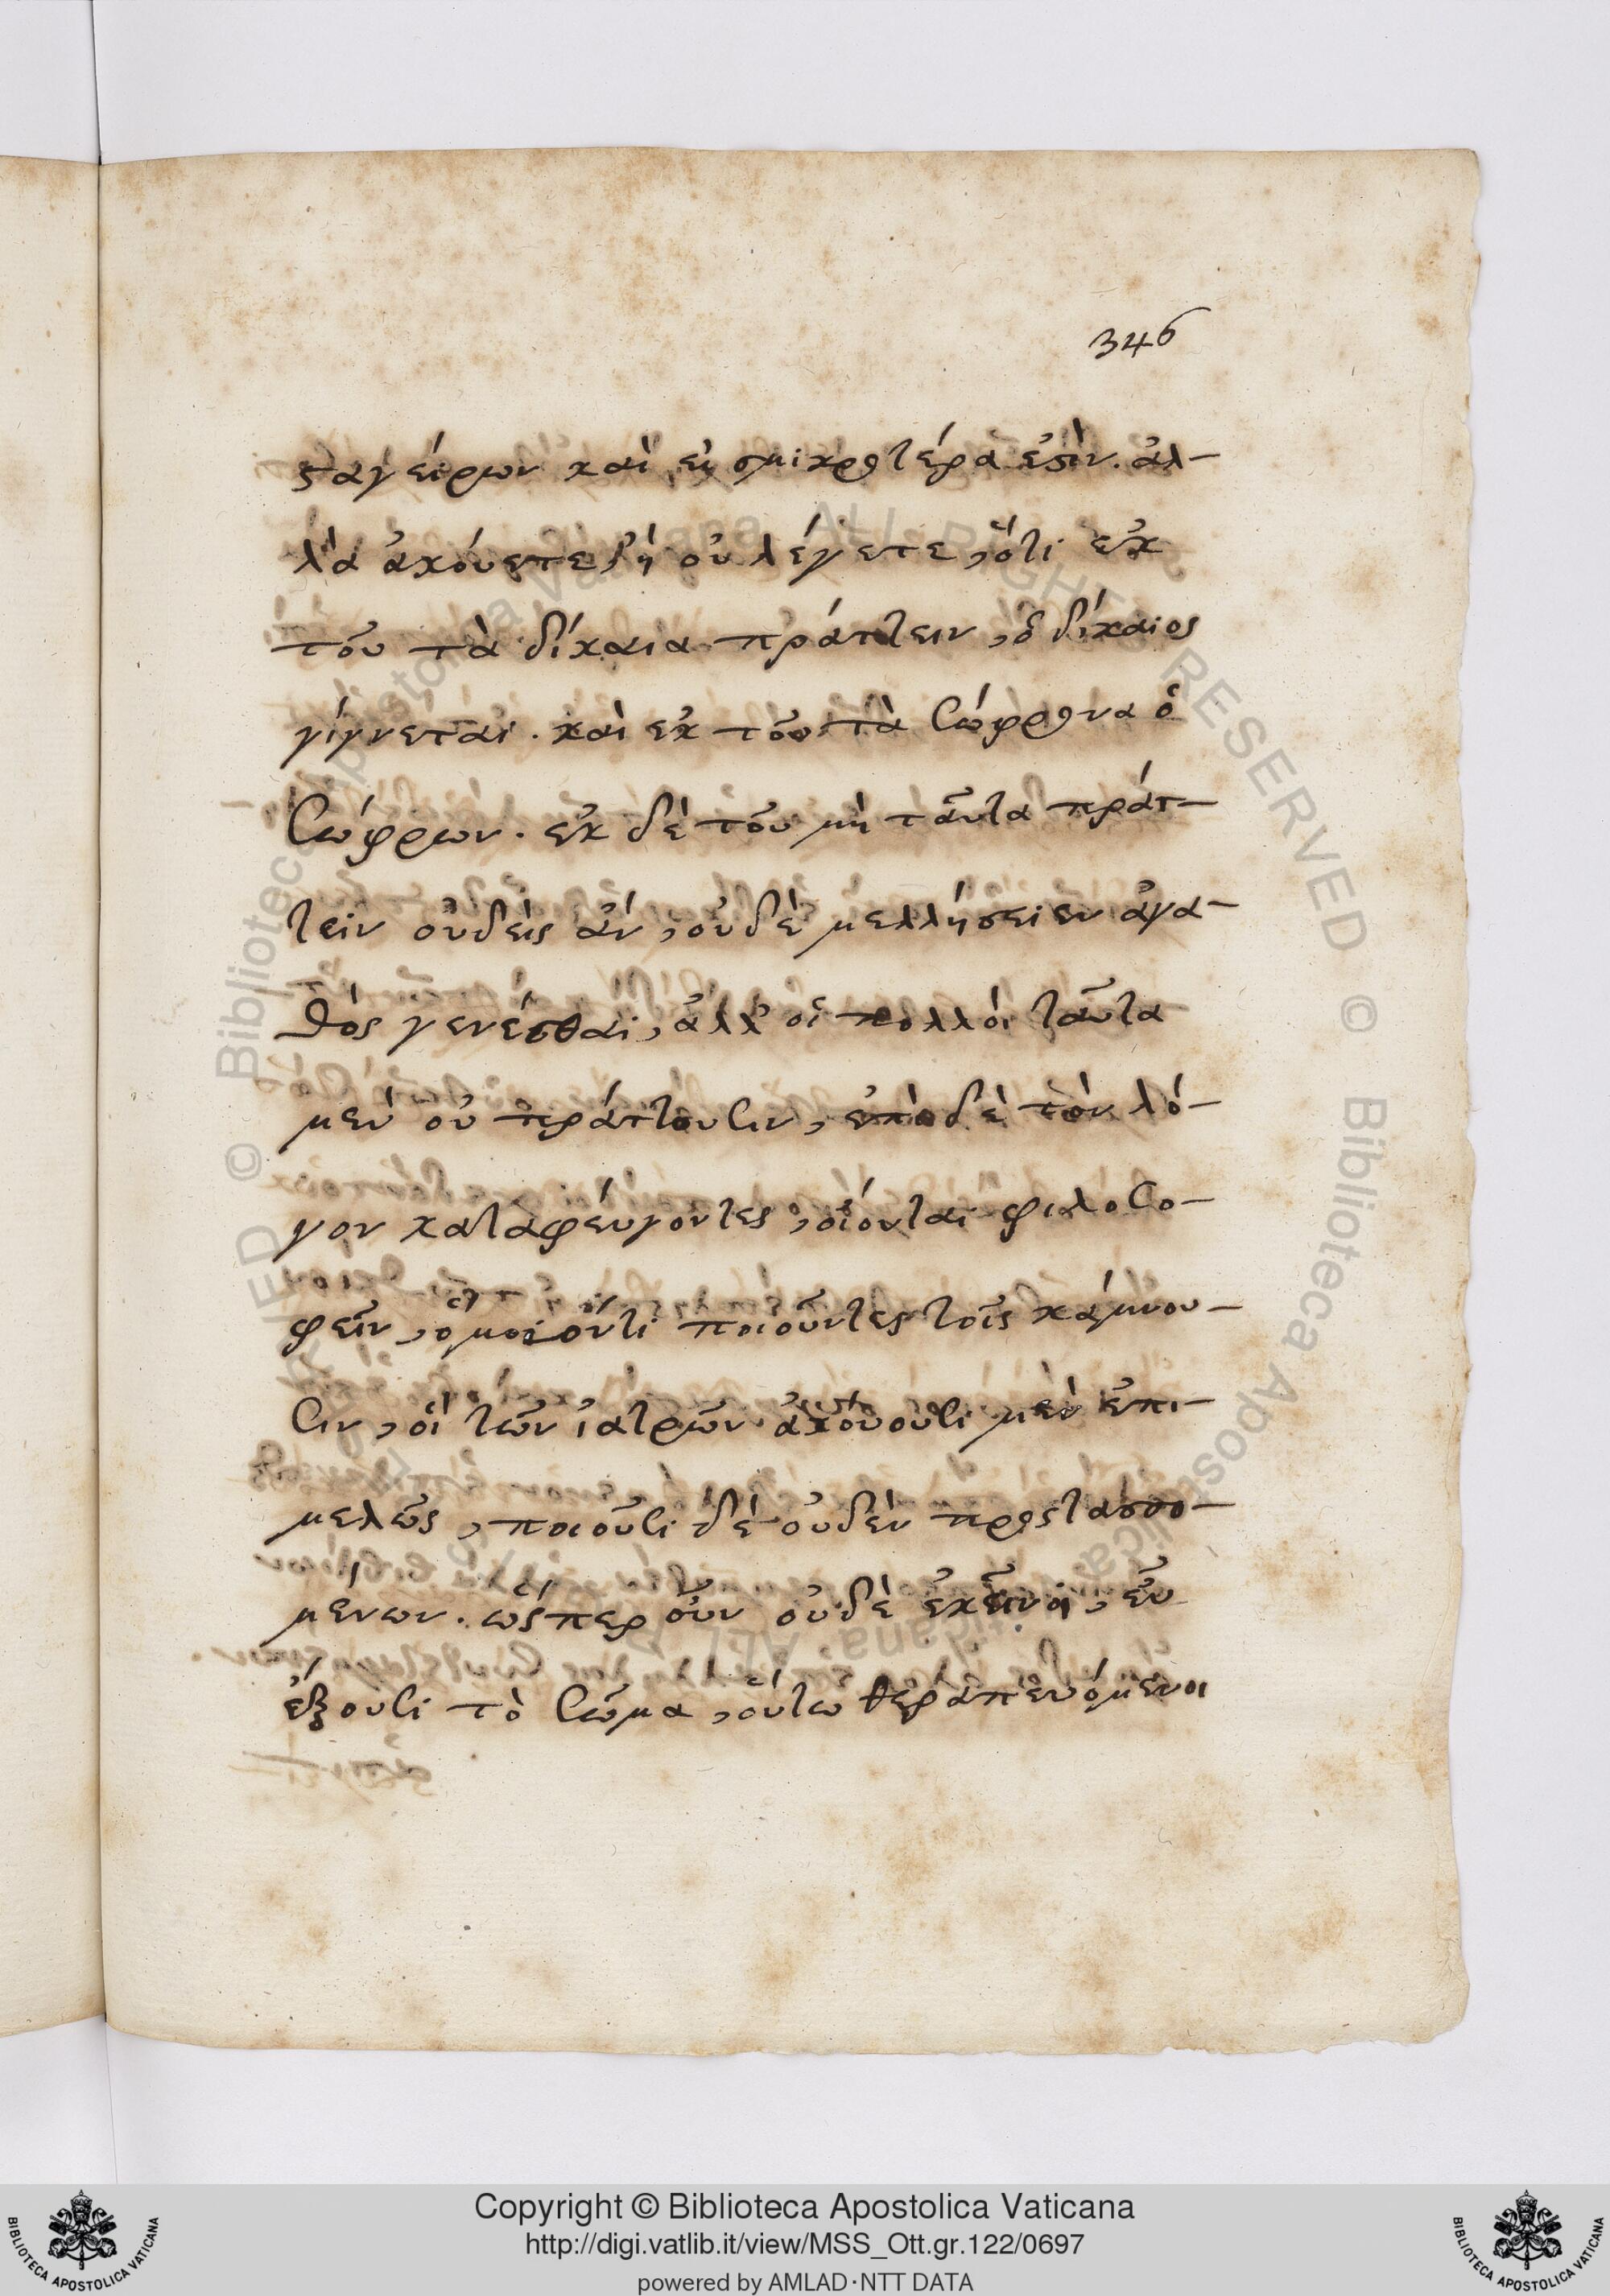 346
ςαγείρων καὶ εἰ σμικρότέρα ἐςὶν. ἀλ-
λὰ ἀκόυετε, ἢ οὐ λέγετε, ὅτι ἐκ
τοῦ τὰ δίκαια πράττειν, ὁ δίκαιος
γίγνεται. καὶ ἐκ τοῦ τὰ σώφρονα ὁ
σώφρων. ἐκ δὲ τοῦ μὴ ταῦτα πράτ-
τειν οὐδεὶς ἂν, οὐδὲ μελλήσειεν ἀγα-
θὸς γενέσθαι, ἀλλ' οἱ πολλοὶ ταῦτα
μεν οὐ πράττουσιν, ἐπὶ δὲ τὸν λό-
γον καταφέυγοντες, οἴονται φιλοσο-
φεῖν, ὅμοιόν τι ποιοῦντες τοῖς κάμνου-
σιν, οἳ τῶν ἰατρῶν ἀκούουσι μὲν ἐπι-
μελῶς, ποιοῦσι δὲ οὐδὲν προςτασσο-
μένων. ὥςπερ οὖν οὐδὲ ἐκεῖνοι, εὖ
ἕξουσι τὸ σῶμα, οὕτω θεραπευόμενοι
Copyright © Biblioteca Apostolica Vaticana
http://digi.vatlib.it/view/MSS_Ott.gr.122/0697
powered by AMLAD·NTT DATA
BIBLIOTECA APOSTOLICA VATICANA
BIBLIOTECA APOSTOLICA VATICANA